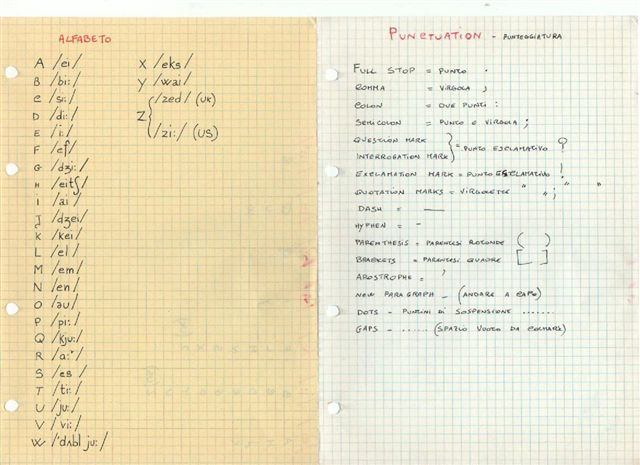 ALFABETO
A /ei/
B /bi:/
C /si:/
D /di:/
E /i:/
F /ef/
G /dʒi:/
H /eitʃ/
I /ai/
J /dʒei/
K /kei/
L /el/
M /em/
N /en/
O /əu/
P /pi:/
Q /kju:/
R /a:ʳ/
S /es/
T /ti:/
U /ju:/
V /vi:/
W /'dʌbl ju:/
X /eks/
Y /wai/
Z { /zed/ (UK)
/zi:/ (US)
PUNCTUATION - PUNTEGGIATURA
FULL STOP = PUNTO .
COMMA = VIRGOLA ,
COLON = DUE PUNTI :
SEMICOLON = PUNTO E VIRGOLA ;
QUESTION MARK
INTERROGATION MARK } = PUNTO ESCLAMATIVO ?
EXCLAMATION MARK = PUNTO ESCLAMATIVO !
QUOTATION MARKS = VIRGOLETTE " " ; " "
DASH = —
HYPHEN = -
PARENTHESIS = PARENTESI ROTONDE ( )
BRACKETS = PARENTESI QUADRE [ ]
APOSTROPHE = '
NEW PARAGRAPH - (ANDARE A CAPO)
DOTS - PUNTINI DI SOSPENSIONE .......
GAPS - ...... (SPAZIO VUOTO DA COLMARE)